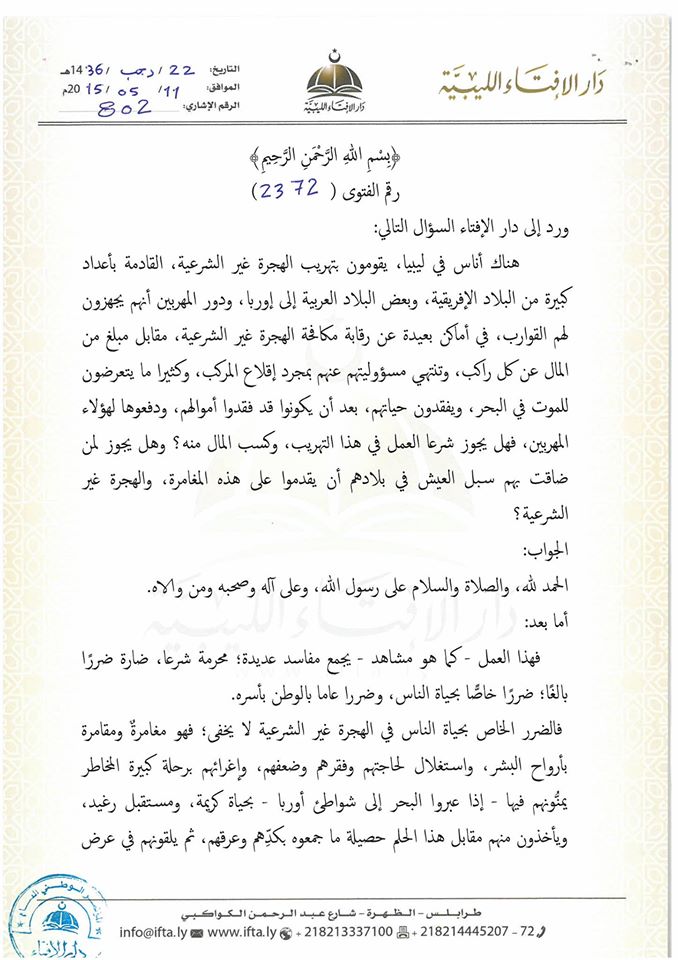 دَار الإفتَاء الليبيَّة
دَار الإفتَاء الليبيَّة
التاريخ: 22 / رجب / 1436هـ
الموافق: 11 / 05 / 2015م
الرقم الإشاري: 802
﴿بِسْمِ اللهِ الرَّحْمَنِ الرَّحِيمِ﴾
رقم الفتوى ( 2372 )
ورد إلى دار الإفتاء السؤال التالي:
هناك أناس في ليبيا، يقومون بتهريب الهجرة غير الشرعية، القادمة بأعداد
كبيرة من البلاد الإفريقية، وبعض البلاد العربية إلى إوربا، ودور المهربين أنهم يجهزون
لهم القوارب، في أماكن بعيدة عن رقابة مكافحة الهجرة غير الشرعية، مقابل مبلغ من
المال عن كل راكب، وتنتهي مسؤوليتهم عنهم بمجرد إقلاع المركب، وكثيرا ما يتعرضون
للموت في البحر، ويفقدون حياتهم، بعد أن يكونوا قد فقدوا أموالهم، ودفعوها لهؤلاء
المهربين، فهل يجوز شرعا العمل في هذا التهريب، وكسب المال منه؟ وهل يجوز لمن
ضاقت بهم سبل العيش في بلادهم أن يقدموا على هذه المغامرة، والهجرة غير
الشرعية؟
الجواب:
الحمد لله، والصلاة والسلام على رسول الله، وعلى آله وصحبه ومن والاه.
أما بعد:
فهذا العمل - كما هو مشاهد - يجمع مفاسد عديدة؛ محرمة شرعا، ضارة ضررًا
بالغًا؛ ضررًا خاصًّا بحياة الناس، وضررا عاما بالوطن بأسره.
فالضرر الخاص بحياة الناس في الهجرة غير الشرعية لا يخفى؛ فهو مغامرةٌ ومقامرة
بأرواح البشر، واستغلال لحاجتهم وفقرهم وضعفهم، وإغرائهم برحلة كبيرة المخاطر
يمنُّونهم فيها - إذا عبروا البحر إلى شواطئ أوربا - بحياة كريمة، ومستقبل رغيد،
ويأخذون منهم مقابل هذا الحلم حصيلة ما جمعوه بكدِّهم وعرقهم، ثم يلقونهم في عرض
طرابلس - الظهرة - شارع عبد الرحمن الكواكبي
info@ifta.ly www.ifta.ly + 218213337100 + 218214445207 - 72
دار الإفتاء